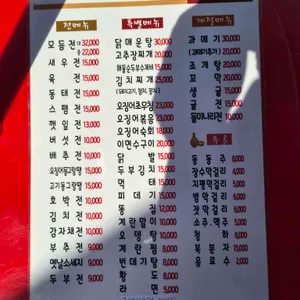 전메뉴
모듬전 대 32,000
소 22,000
새우전 15,000
육전 15,000
동태전 15,000
스팸전 15,000
깻잎전 13,000
버섯전 10,000
배추전 10,000
오징어동그랑땡 15,000
고기동그랑땡 15,000
호박전 10,000
김치전 10,000
감자채전 10,000
부추전 9,000
옛날소세지 9,000
두부전 9,000
특별메뉴
닭매운탕 30,000
고추장찌개 20,000
해물순두부찌개 15,000
김치찌개 25,000
오징어초무침 23,000
오징어볶음 23,000
오징어숙회 18,000
이면수구이 20,000
닭발 15,000
두부김치 15,000
먹태 15,000
피데기 15,000
똥집 12,000
계란말이 10,000
오뎅탕 10,000
계란찜 8,000
번데기탕 8,000
황도 8,000
라면 5,000
계절메뉴
과메기 30,000
(과메기추가) 20,000
조개탕 20,000
꼬막 20,000
생굴 20,000
굴전 20,000
돌미나리전 10,000
주류
동동주 8,000
장수막걸리
지평막걸리
밤막걸리
잣막걸리
소주, 맥주
청하
복분자 15,000
음료수 2,000